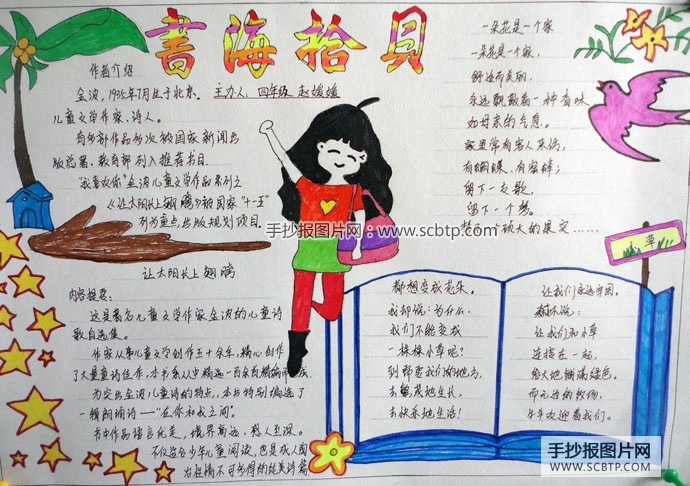 书海拾贝
主办人：四年级 赵媛媛
作者介绍
金波，1935年7月生于北京。
儿童文学作家、诗人。
有多部作品多次被国家新闻出
版总署、教育部列入推荐书目
"我喜欢你"金波儿童文学作品系列之
《让太阳长上翅膀》被国家"十一五"
列为重点出版规划项目。
让太阳长上翅膀
内容提要：
这是著名儿童文学作家金波的儿童诗
歌自选集。
作家从事儿童文学创作五十余年，精心创作
了大量童诗佳作，本书系从中精选一百余首精编而成
为突出金波儿童诗的特点，本书特别编选了
一辑朗诵诗——"在你和我之间"。
书中作品语言优美，境界高远，感人至深。
不仅适合少年儿童阅读，也是成人阅
治性情不可多得的纯美诗篇
一朵花是一个家
一朵花是一个家，
舒适而美丽，
永远飘散着一种香味
如母亲的气息。
家里常有客人来访，
有蝴蝶，有蜜蜂；
留下一支歌，
留下一个梦。
硕大的果实……
草
都想变成花朵。
我却说：为什么
我们不能变成
一株株小草呢？
到那需要我们的地方，
去繁茂地生长，
去快乐地生活！
让我们永远牢固。
说：
让我们和小草
连接在一起，
给大地铺满绿色。
而无边的牧场，
牛羊欢迎着我们。
手抄报图片网
SCBTP.COM
手抄报图片网：www.scbtp.com
手抄报图片网
WWW.SCBTP.COM